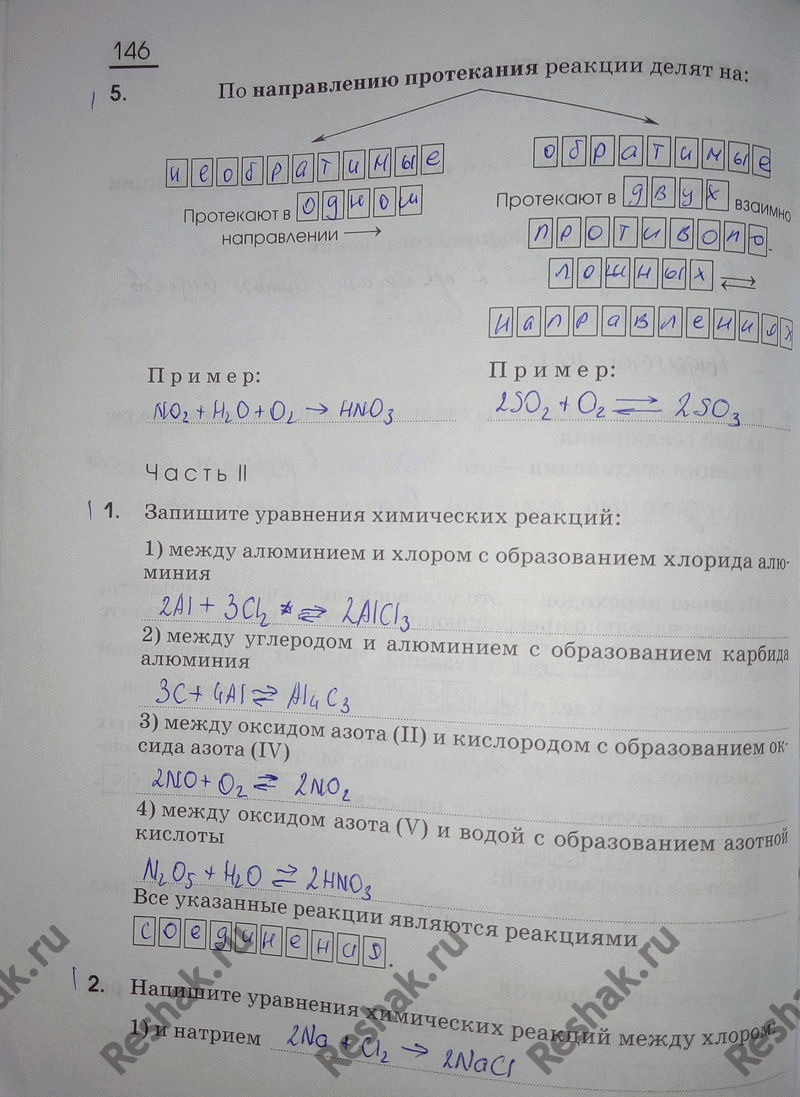 146
5. По направлению протекания реакции делят на:
необратимые
обратимые
Протекают в одном
направлении →
Протекают в двух взаимно
противопо-
ложных ⇄
направлениях
Пример:
NO₂ + H₂O + O₂ → HNO₃
Пример:
2SO₂ + O₂ ⇄ 2SO₃
Часть II
1. Запишите уравнения химических реакций:
1) между алюминием и хлором с образованием хлорида алю-
миния
2Al + 3Cl₂ ⇄ 2AlCl₃
2) между углеродом и алюминием с образованием карбида
алюминия
3C + 4Al ⇄ Al₄C₃
3) между оксидом азота (II) и кислородом с образованием ок-
сида азота (IV)
2NO + O₂ ⇄ 2NO₂
4) между оксидом азота (V) и водой с образованием азотной
кислоты
N₂O₅ + H₂O ⇄ 2HNO₃
Все указанные реакции являются реакциями
соединения.
2. Напишите уравнения химических реакций между хлором:
1) и натрием 2Na + Cl₂ → 2NaCl
Reshak.ru
Reshak.ru
Reshak.ru